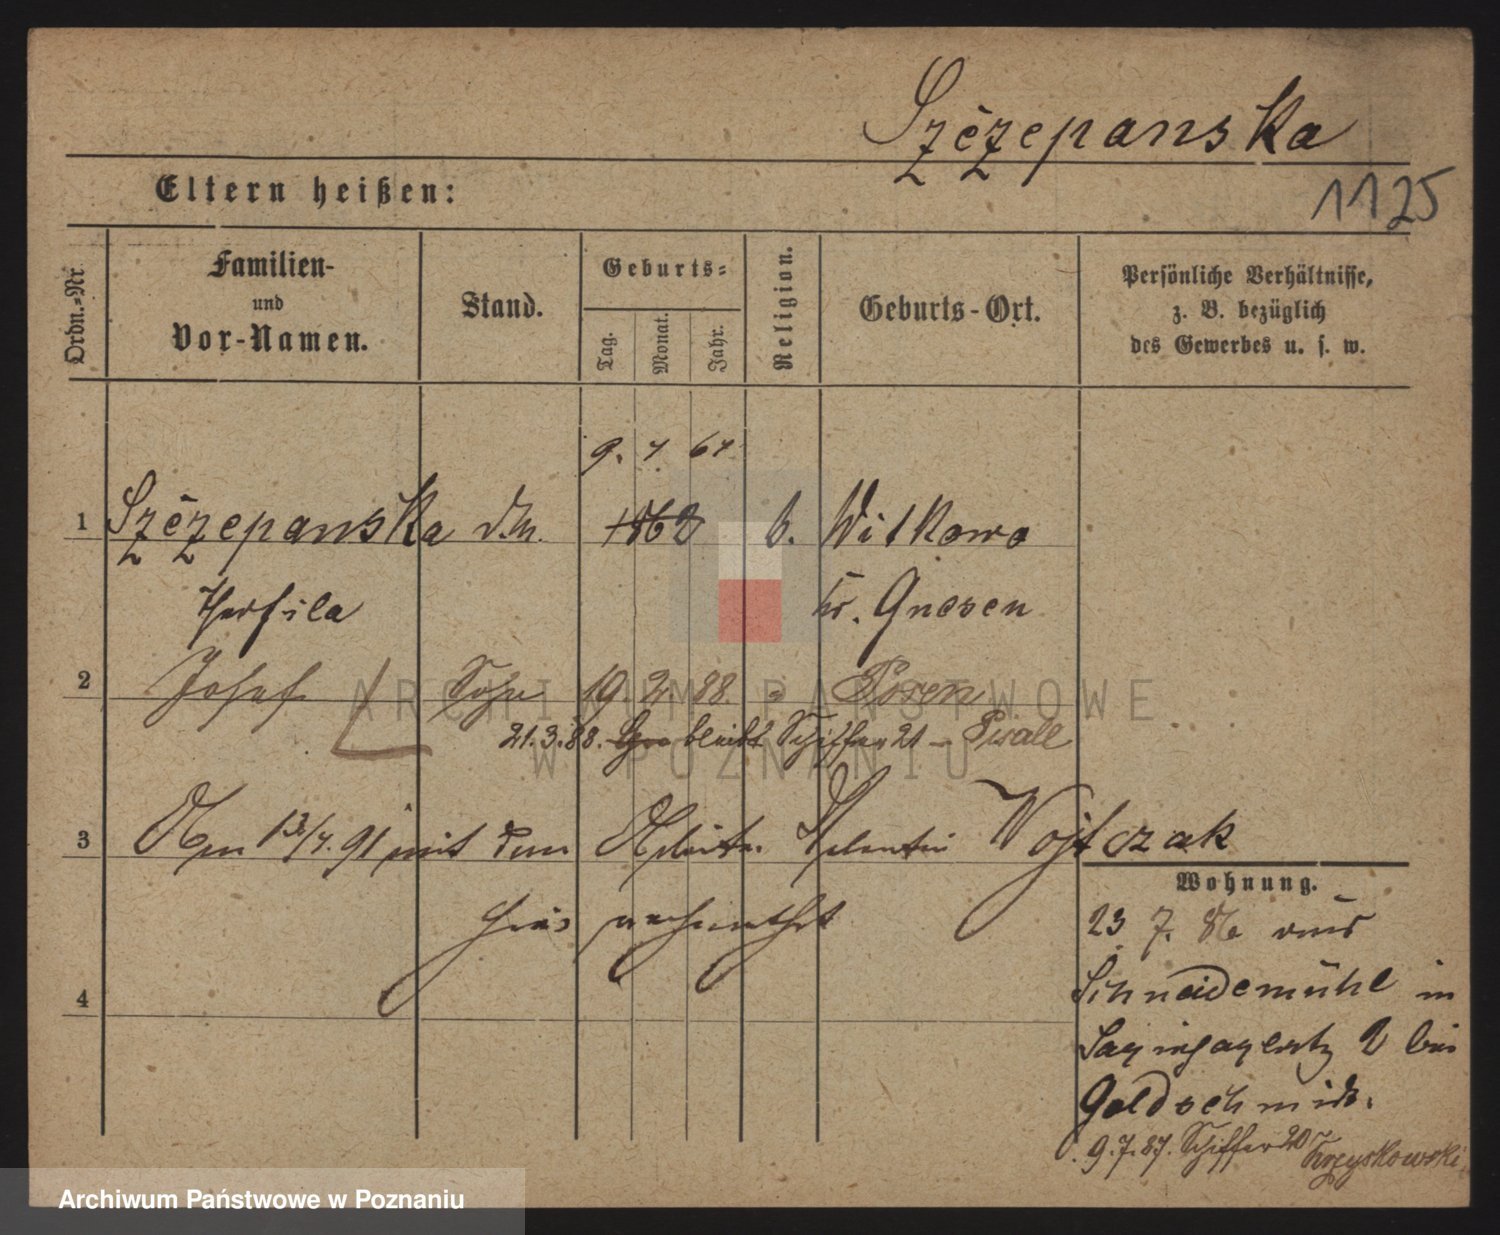 Szczepanska
1125
Eltern heißen:
Ordn.-Nr.
Familien-
und
Vor-Namen.
Stand.
Geburts-
Tag.
Monat.
Jahr.
Religion.
Geburts-Ort.
Persönliche Verhältnisse,
z. B. bezüglich
des Gewerbes u. s. w.
9. 7. 67
1 Szczepanska d.M. 1862 k. Witkowo
Kr. Gnesen
2 Josef Sohn 19. 2. 88. Posen
21.3.88. bleibt Schiffer 21 -
3 Am 13/7. 91 mit dem Arbeiter Valentin Wojtczak
hier verheirathet
Wohnung.
23 7. 86 aus
Schneidemühl in
Sapiehaplatz 2 bei
Goldschmidt.
4
9.7.87. Schiffer 20 Krzyskowski
ARCHIWUM PAŃSTWOWE
W POZNANIU
Archiwum Państwowe w Poznaniu